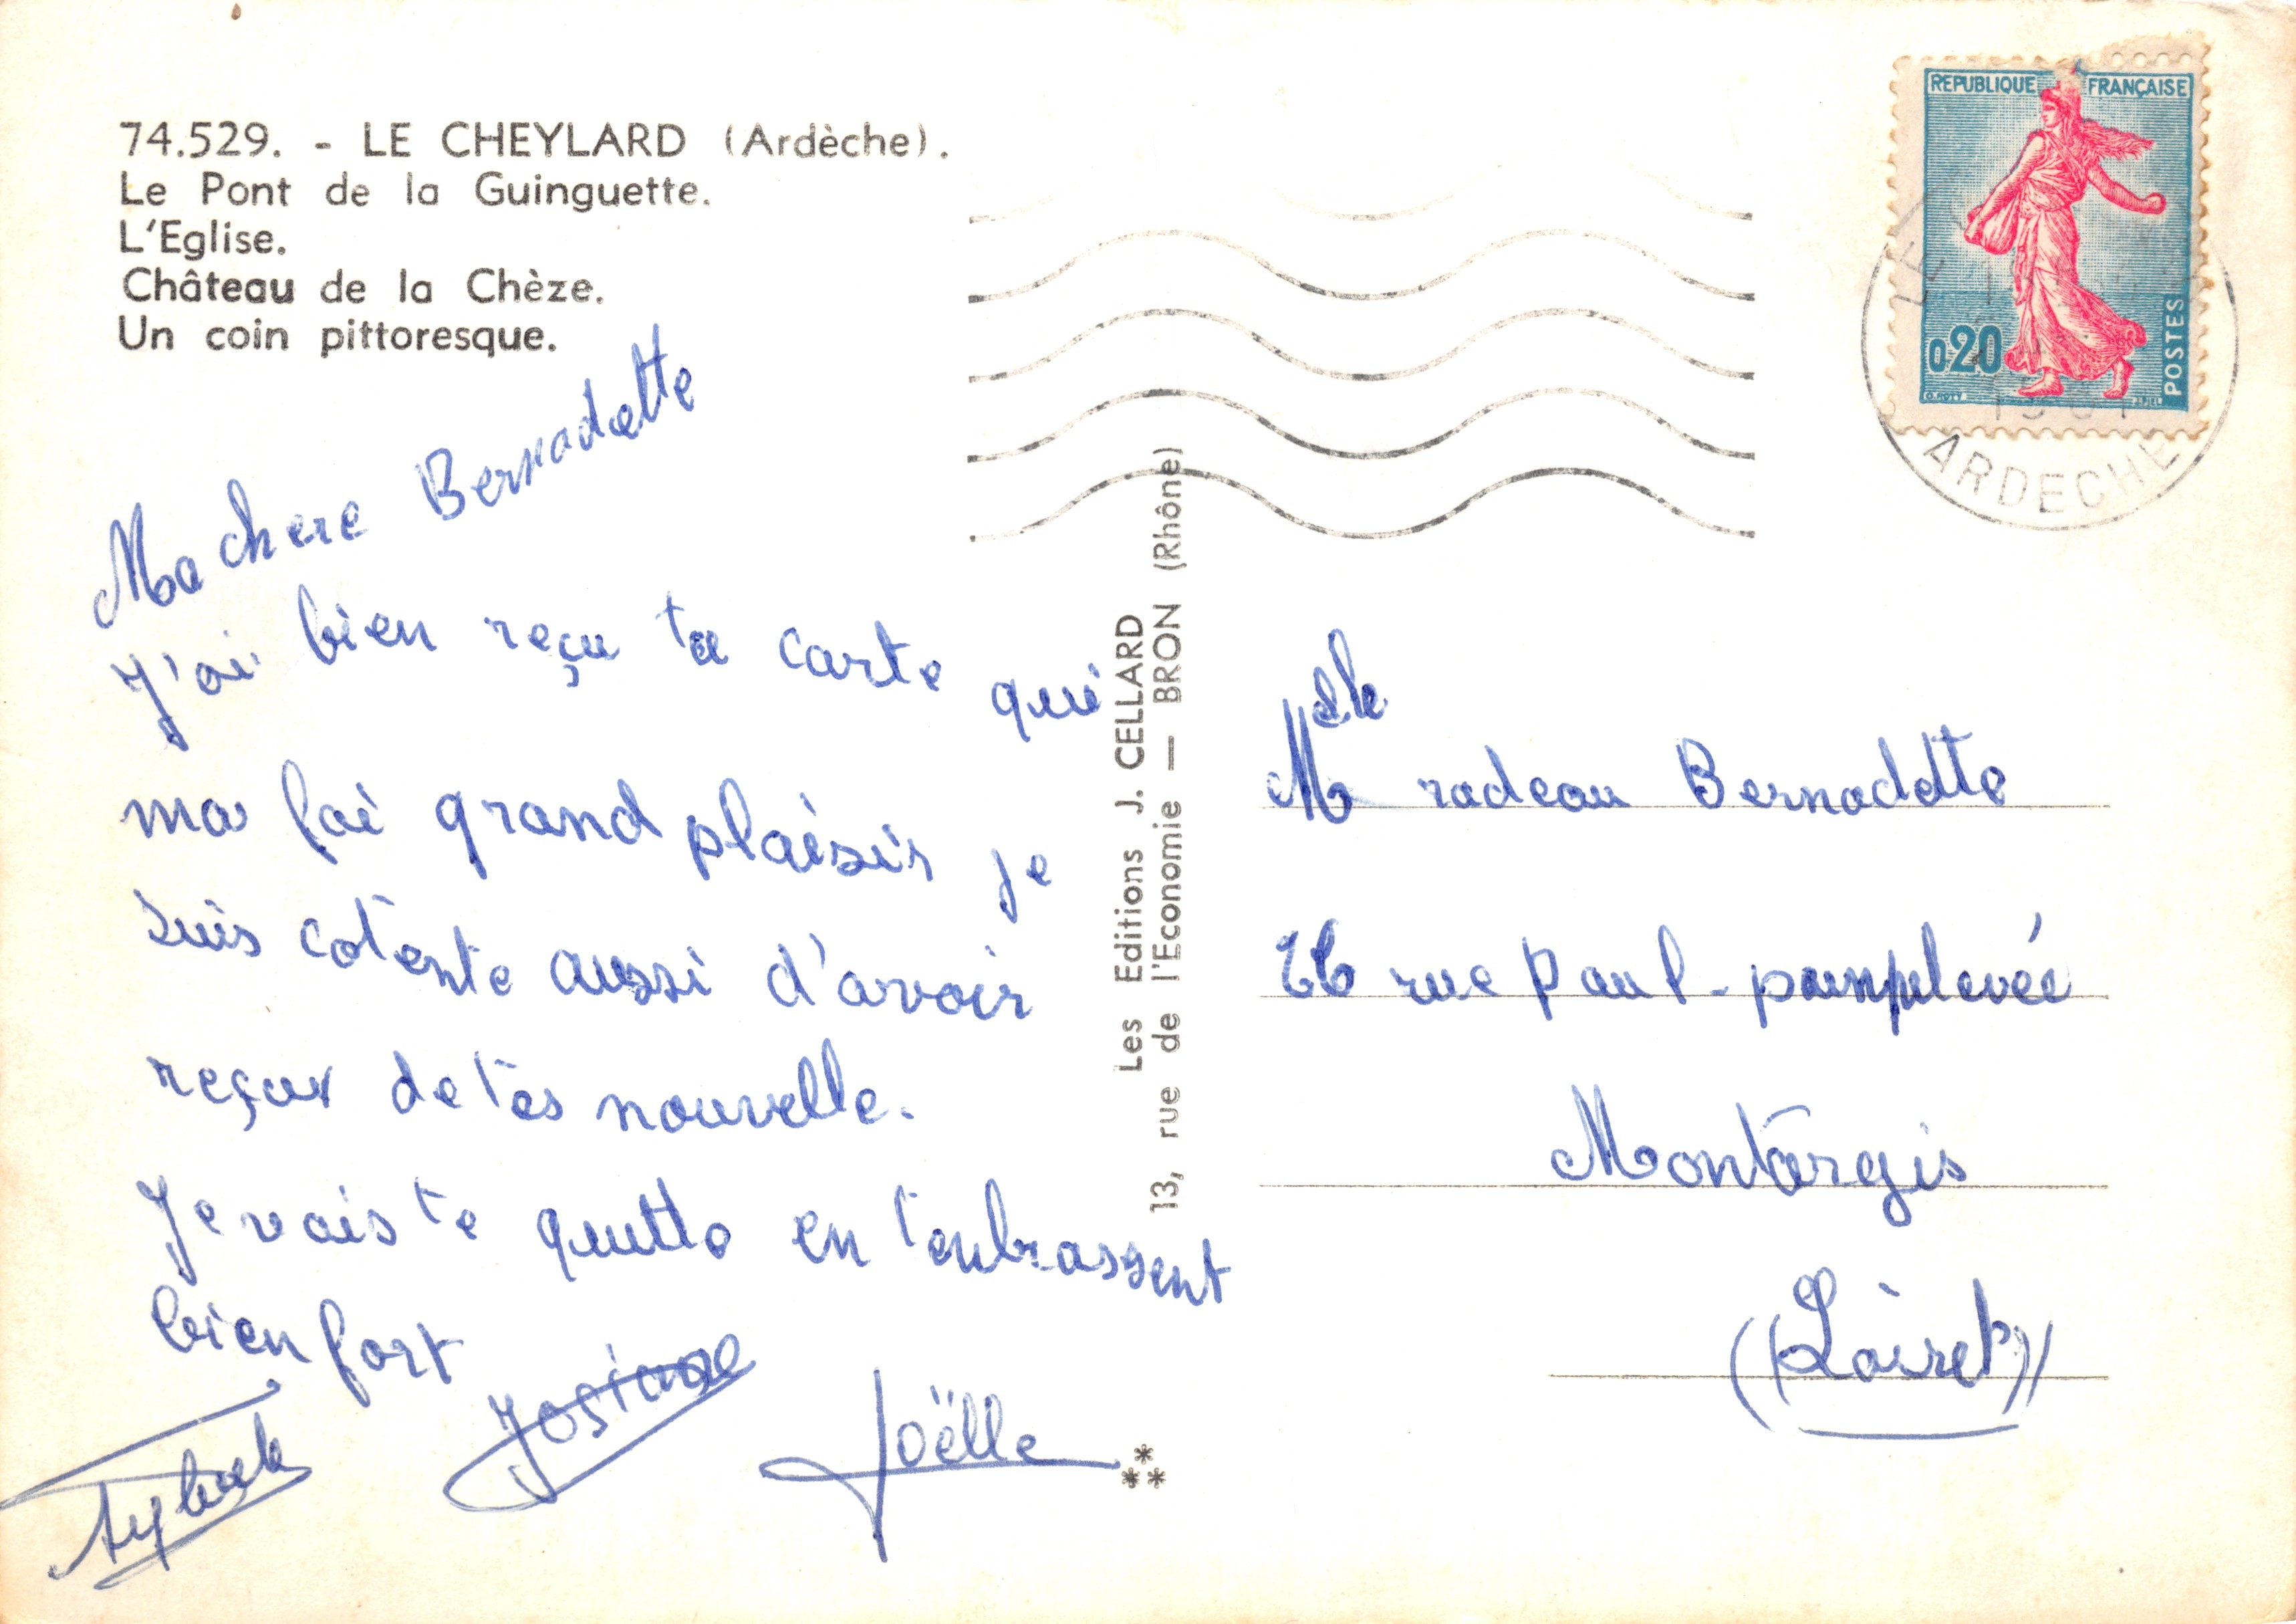 74.529. - LE CHEYLARD (Ardèche).
Le Pont de la Guinguette.
L'Eglise.
Château de la Chèze.
Un coin pittoresque.
Ma chere Bernadette
J'ai bien reçu ta carte qui
ma fai grand plaisir je
suis cotente aussi d'avoir
reçur de tes nouvelle.
Je vais te quitto en t'enbrassent
bien fort
Josiane
Joëlle
Les Editions J. CELLARD
13, rue de l'Economie — BRON (Rhône)
REPUBLIQUE FRANÇAISE
0,20
POSTES
LE
ARDECHE
Melle radeau Bernadette
rue Paul - pampelevée
Montargis
((Loiret))